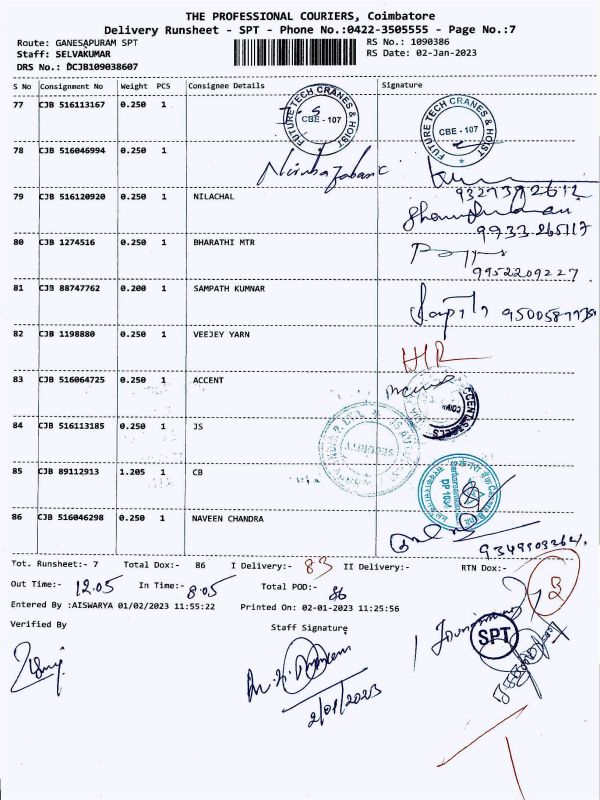 THE PROFESSIONAL COURIERS, Coimbatore
Delivery Runsheet - SPT - Phone No.:0422-3505555 - Page No.:7
Route: GANESAPURAM SPT RS No.: 1090386
Staff: SELVAKUMAR RS Date: 02-Jan-2023
DRS No.: DCJB109038607
S No Consignment No Weight PCS Consignee Details Signature
77 CJB 516113167 0.250 1
FUTURE TECH CRANES & HOIST CBE - 107
FUTURE TECH CRANES & HOIST CBE - 107
78 CJB 516046994 0.250 1
79 CJB 516120920 0.250 1 NILACHAL
80 CJB 1274516 0.250 1 BHARATHI MTR
9952209227
81 CJB 88747762 0.200 1 SAMPATH KUMNAR
82 CJB 1198880 0.250 1 VEEJEY YARN
83 CJB 516064725 0.250 1 ACCENT
84 CJB 516113185 0.250 1 JS
85 CJB 89112913 1.205 1 CB
86 CJB 516046298 0.250 1 NAVEEN CHANDRA
Tot. Runsheet:- 7 Total Dox:- 86 I Delivery:- 83 II Delivery:- RTN Dox:- 3
Out Time:- 12.05 In Time:- 8.05 Total POD:- 86
Entered By :AISWARYA 01/02/2023 11:55:22 Printed On: 02-01-2023 11:25:56
Verified By Staff Signature
SPT
2/01/2023